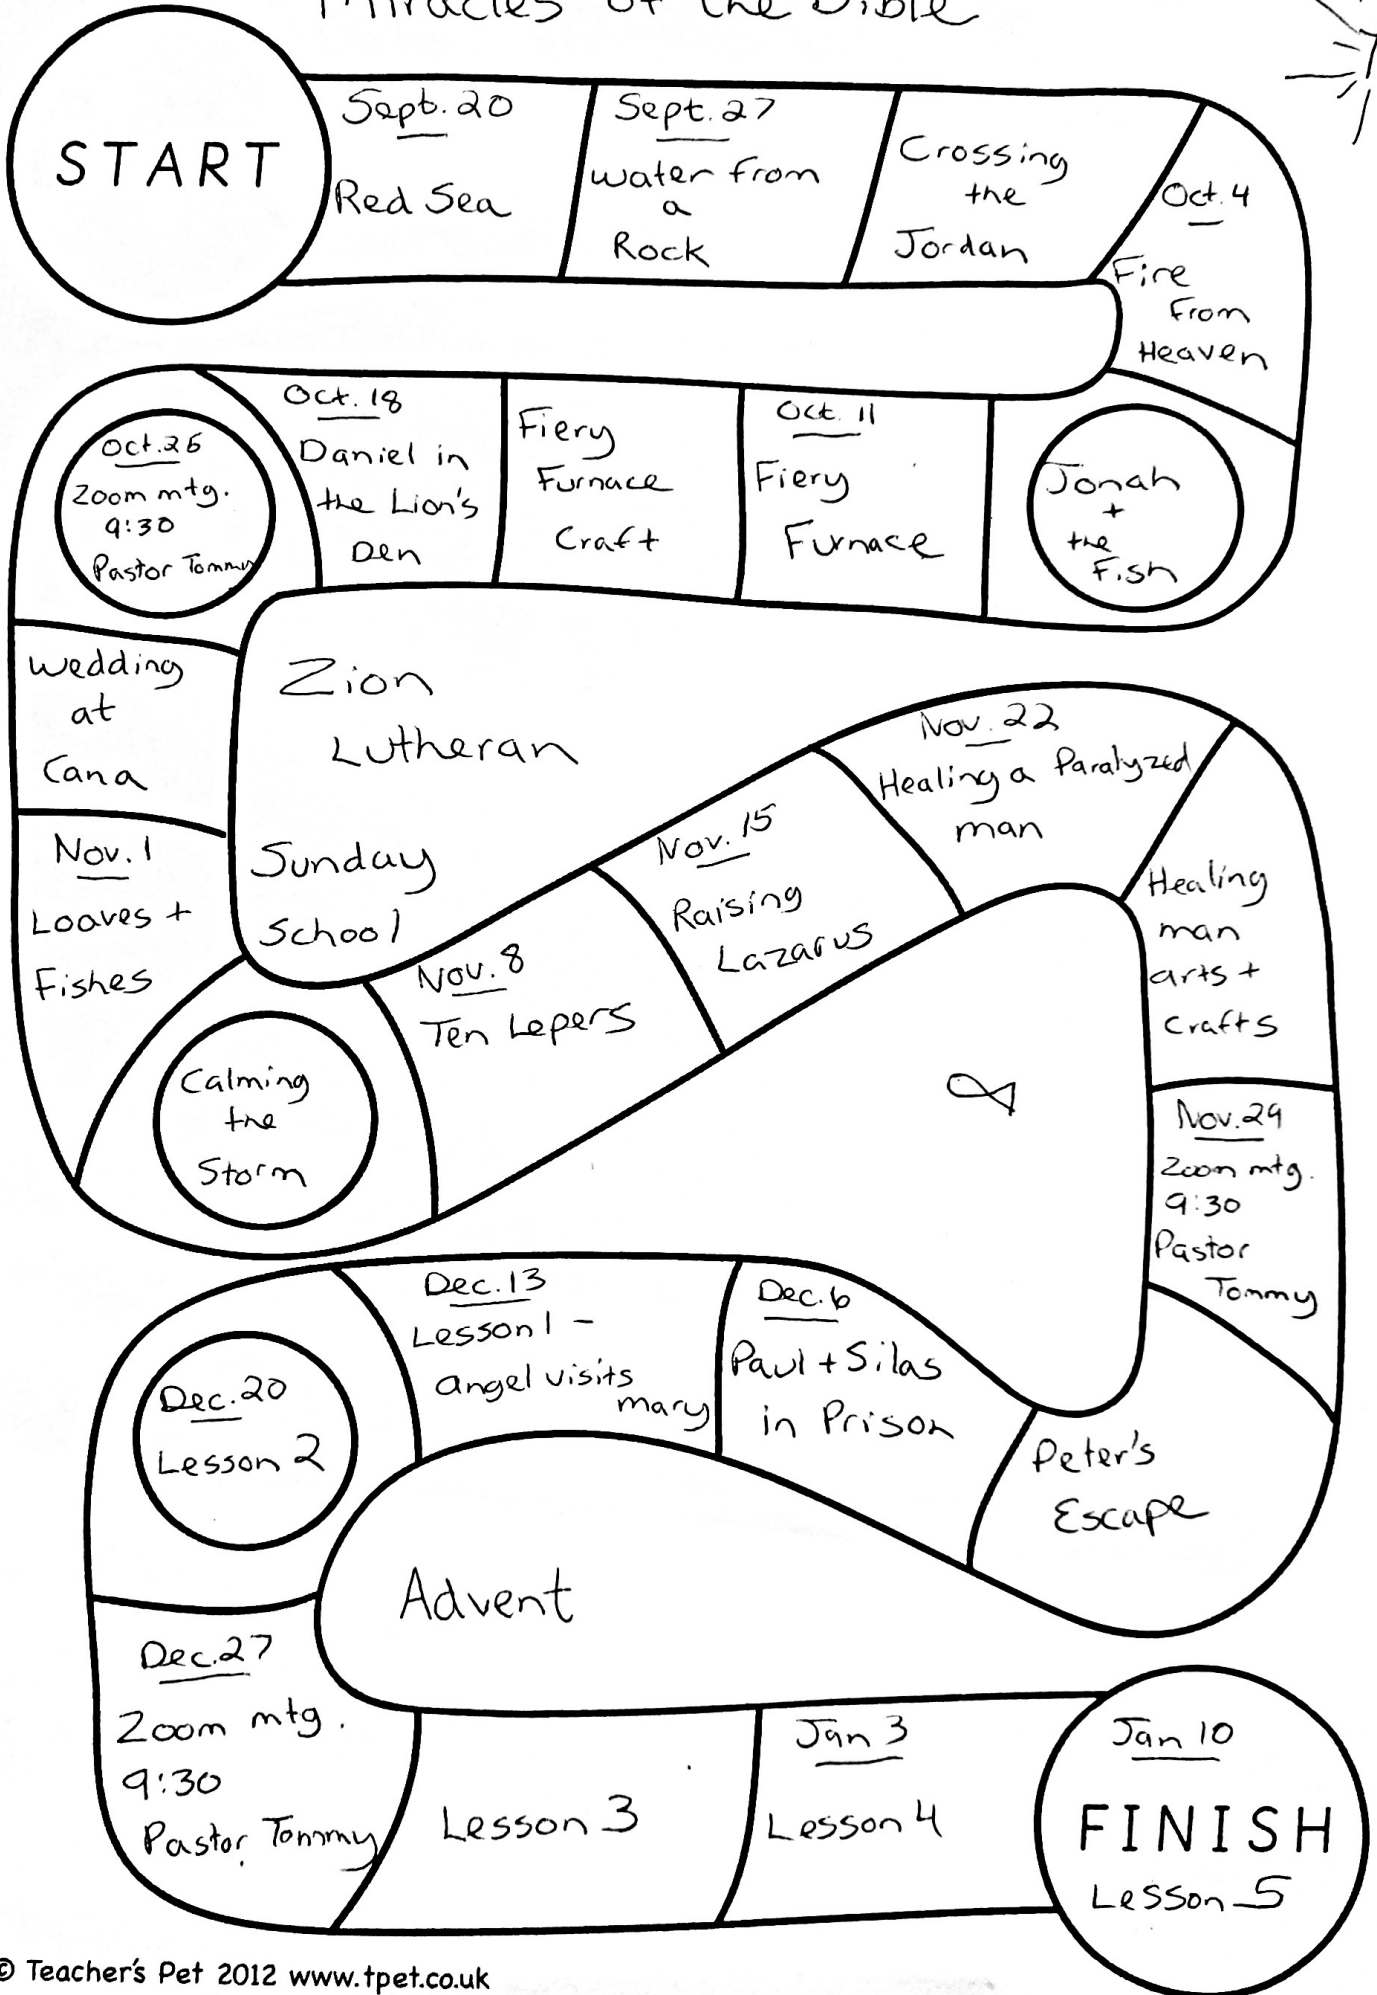 Miracles of the Bible
START
Sept. 20
Red Sea
Sept. 27
Water from
a
Rock
Crossing
the
Jordan
Oct. 4
Fire
From
Heaven
Jonah
+
the
Fish
Oct. 11
Fiery
Furnace
Fiery
Furnace
Craft
Oct. 18
Daniel in
the Lion's
Den
Oct. 25
Zoom mtg.
9:30
Pastor Tommy
Wedding
at
Cana
Nov. 1
Loaves +
Fishes
Calming
the
Storm
Zion
Lutheran
Sunday
School
Nov. 8
Ten Lepers
Nov. 15
Raising
Lazarus
Nov. 22
Healing a Paralyzed
man
Healing
man
arts +
crafts
Nov. 29
Zoom mtg.
9:30
Pastor
Tommy
Peter's
Escape
Dec. 6
Paul + Silas
in Prison
Dec. 13
Lesson 1 -
angel visits
mary
Dec. 20
Lesson 2
Advent
Dec. 27
Zoom mtg.
9:30
Pastor Tommy
Lesson 3
Jan 3
Lesson 4
Jan 10
FINISH
Lesson 5
© Teacher's Pet 2012 www.tpet.co.uk